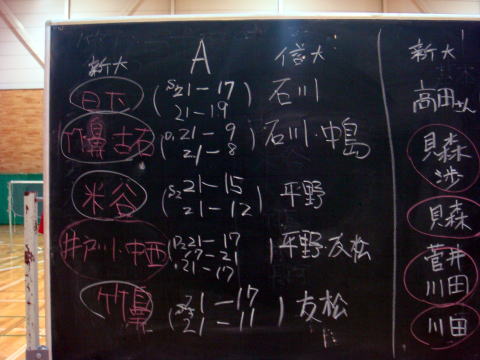 A
新大 信大 新大
日下 S1 21-17 石川 高田さん
21-19
竹鼻 古石 D1 21-9 石川・中島 貝森
21-8 渉
米谷 S2 21-15 平野 貝森
21-12
井戸川・中西 D2 21-17 平野・友松 菅井
17-21 川田
21-17
竹鼻 S3 21-17 友松 川田
21-11